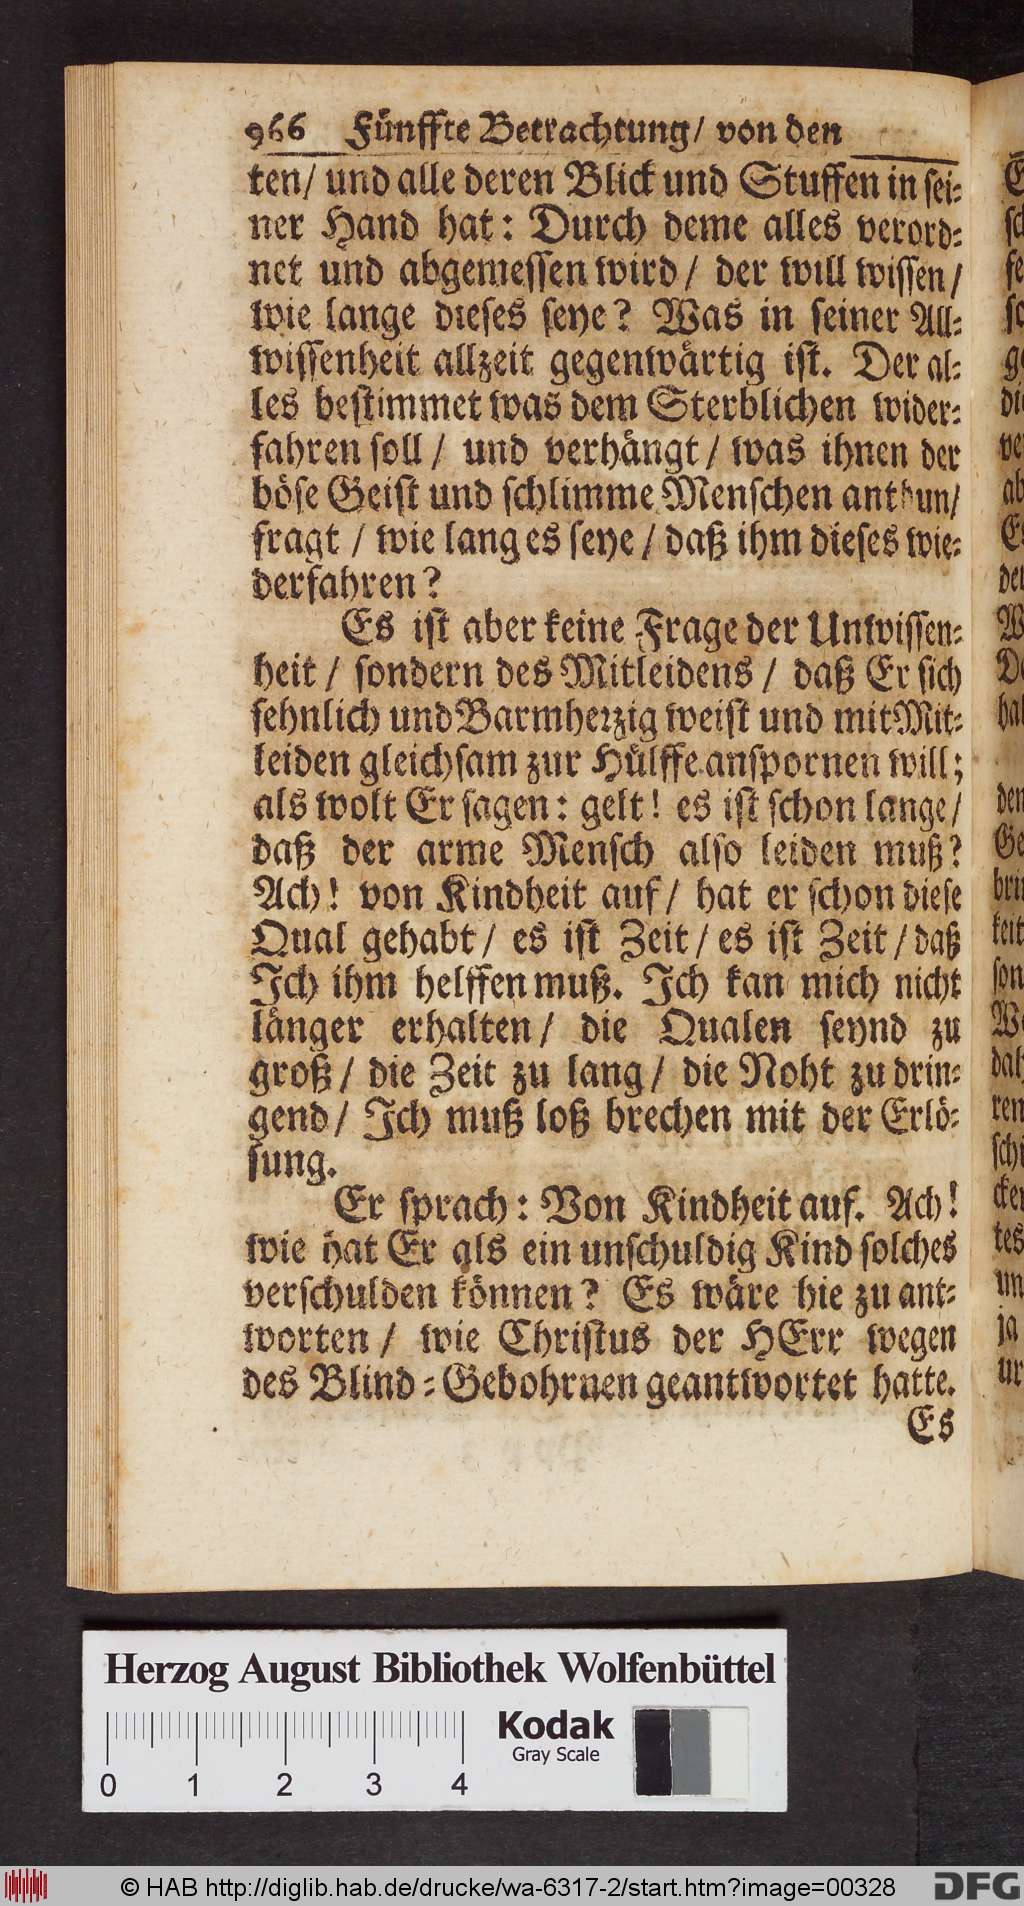 966 Fünffte Betrachtung/ von den
ten/ und alle deren Blick und Stuffen in sei-
ner Hand hat: Durch deme alles verord-
net und abgemessen wird/ der will wissen/
wie lange dieses seye? Was in seiner All-
wissenheit allzeit gegenwärtig ist. Der al-
les bestimmet was dem Sterblichen wider-
fahren soll/ und verhängt/ was ihnen der
böse Geist und schlimme Menschen anthun/
fragt/ wie lang es seye/ daß ihm dieses wie-
derfahren?
Es ist aber keine Frage der Unwissen-
heit/ sondern des Mitleidens/ daß Er sich
sehnlich und Barmhertzig weist und mit Mit-
leiden gleichsam zur Hülffe anspornen will;
als wolt Er sagen: gelt! es ist schon lange/
daß der arme Mensch also leiden muß?
Ach! von Kindheit auf/ hat er schon diese
Qual gehabt/ es ist Zeit/ es ist Zeit/ daß
Ich ihm helffen muß. Ich kan mich nicht
länger erhalten/ die Qualen seynd zu
groß/ die Zeit zu lang/ die Noht zu drin-
gend/ Ich muß loß brechen mit der Erlö-
sung.
Er sprach: Von Kindheit auf. Ach!
wie hat Er als ein unschuldig Kind solches
verschulden können? Es wäre hie zu ant-
worten/ wie Christus der HErr wegen
des Blind-Gebohrnen geantwortet hatte.
Es
Herzog August Bibliothek Wolfenbüttel
Kodak
Gray Scale
0 1 2 3 4
© HAB http://diglib.hab.de/drucke/wa-6317-2/start.htm?image=00328
DFG